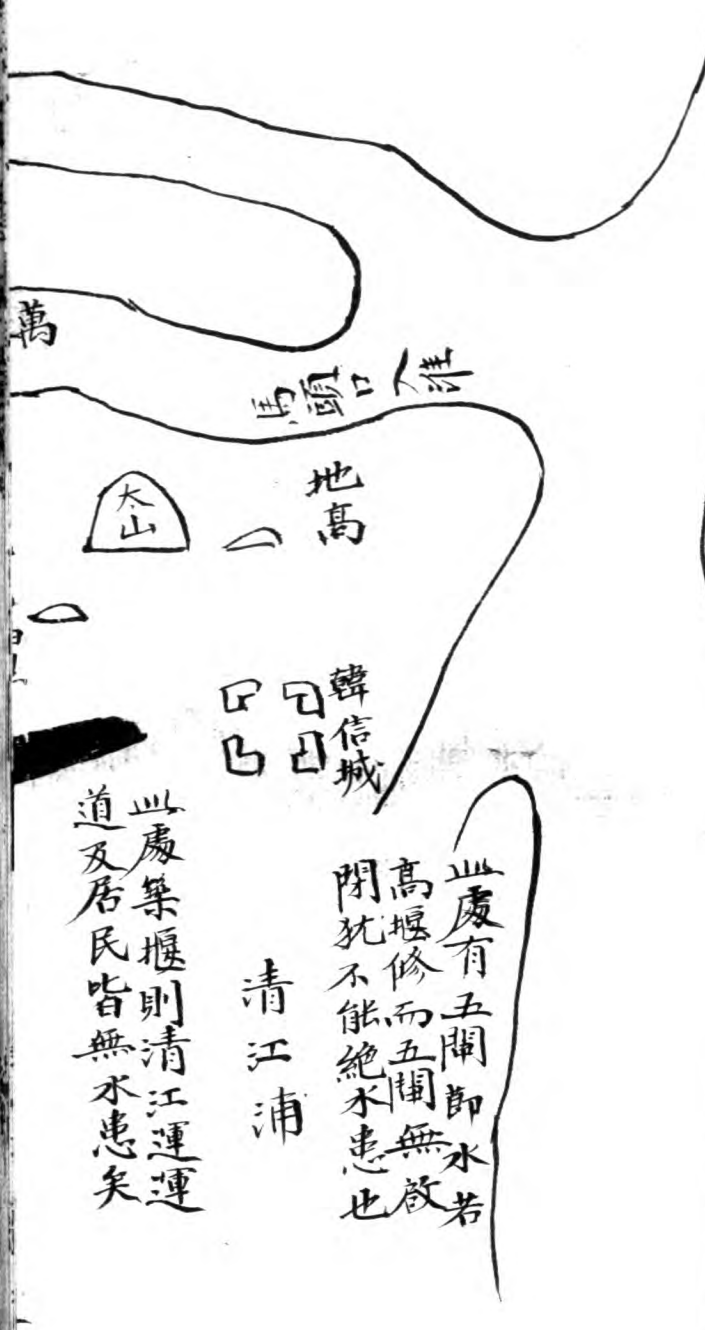 萬
馬頭口入淮
地高
太山
韓信城
此處有五閘節水若
高堰修而五閘無啟
閉犹不能絶水患也
清江浦
此處築堰則清江運運
道及居民皆無水患矣